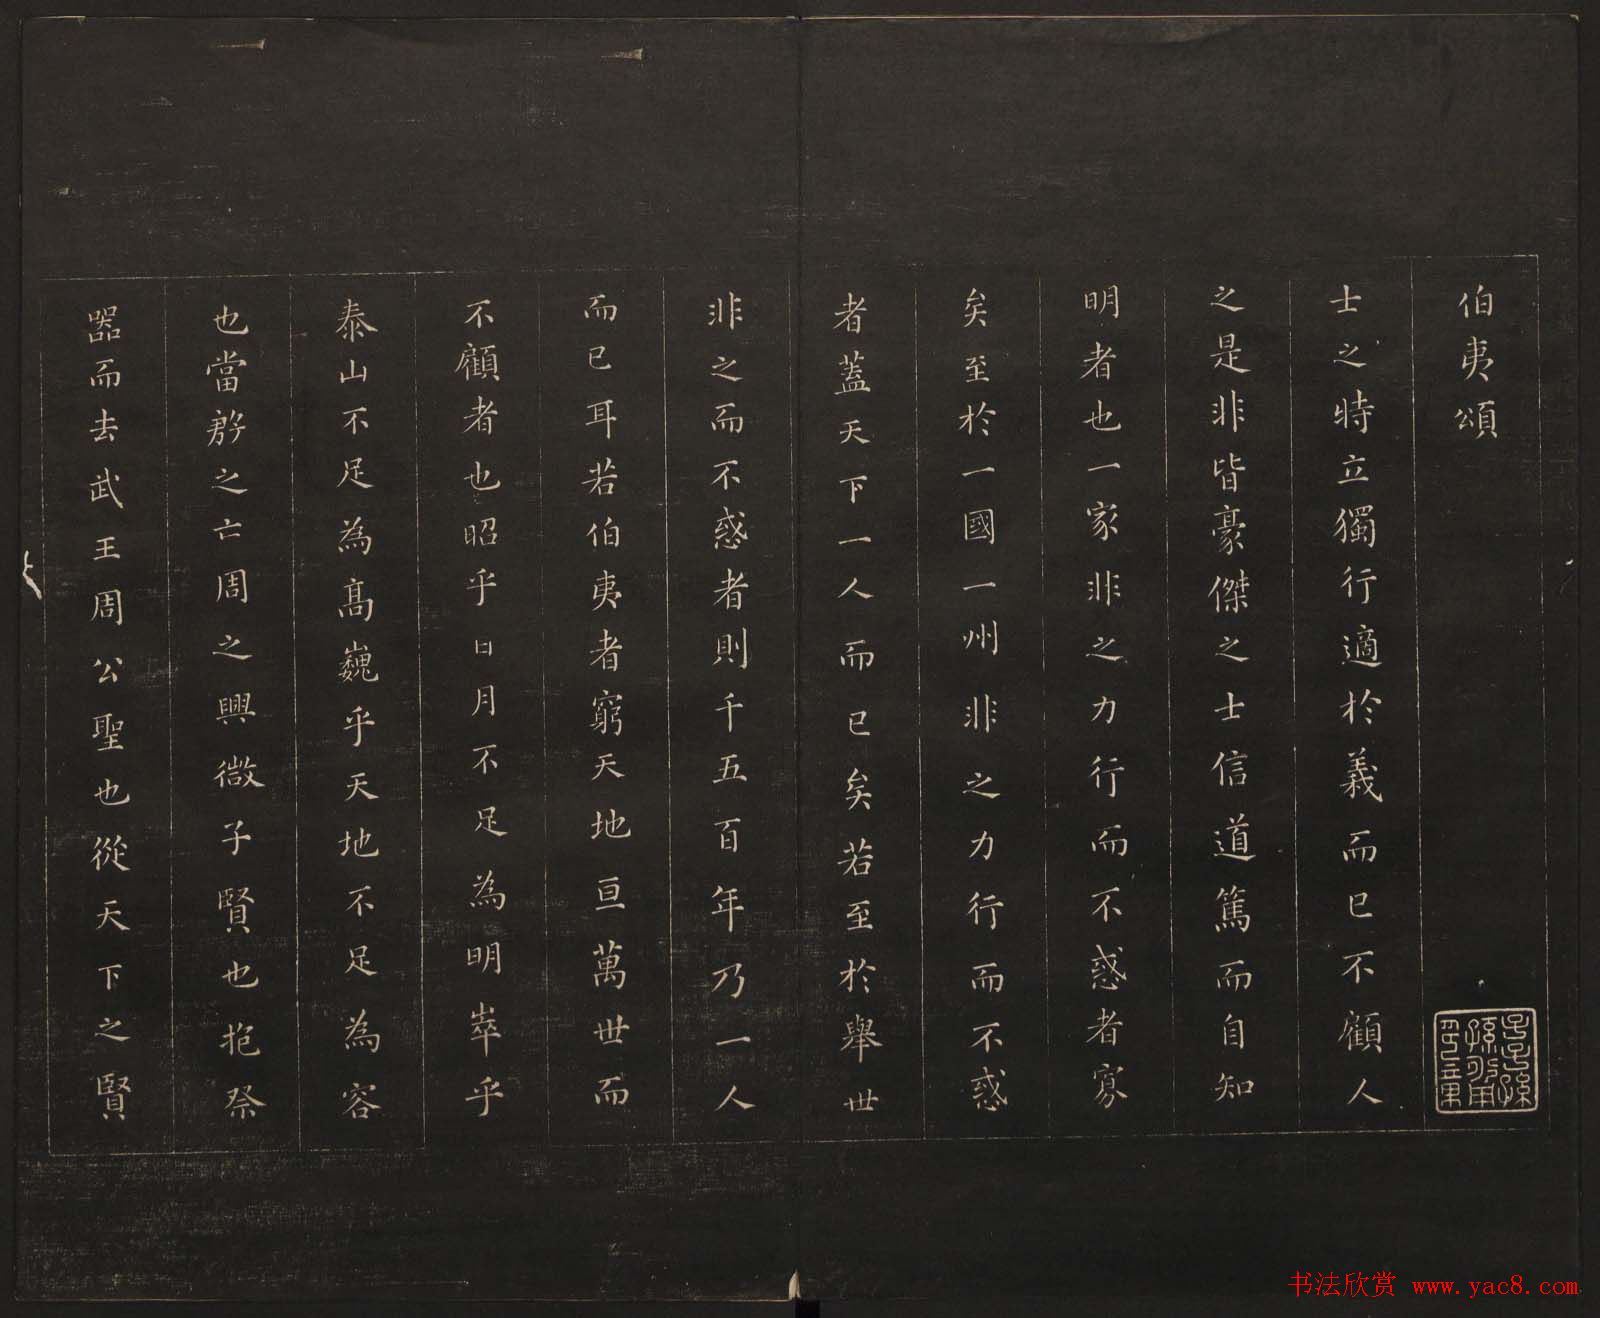 伯夷頌
士之特立獨行適於義而已不顧人
之是非皆豪傑之士信道篤而自知
明者也一家非之力行而不惑者寡
矣至於一國一州非之力行而不惑
者蓋天下一人而已矣若至於舉世
非之而不惑者則千五百年乃一人
而已耳若伯夷者窮天地亘萬世而
不顧者也昭乎日月不足為明崒乎
泰山不足為高巍乎天地不足為容
也當殷之亡周之興微子賢也抱祭
器而去武王周公聖也從天下之賢
书法欣赏 www.yac8.com